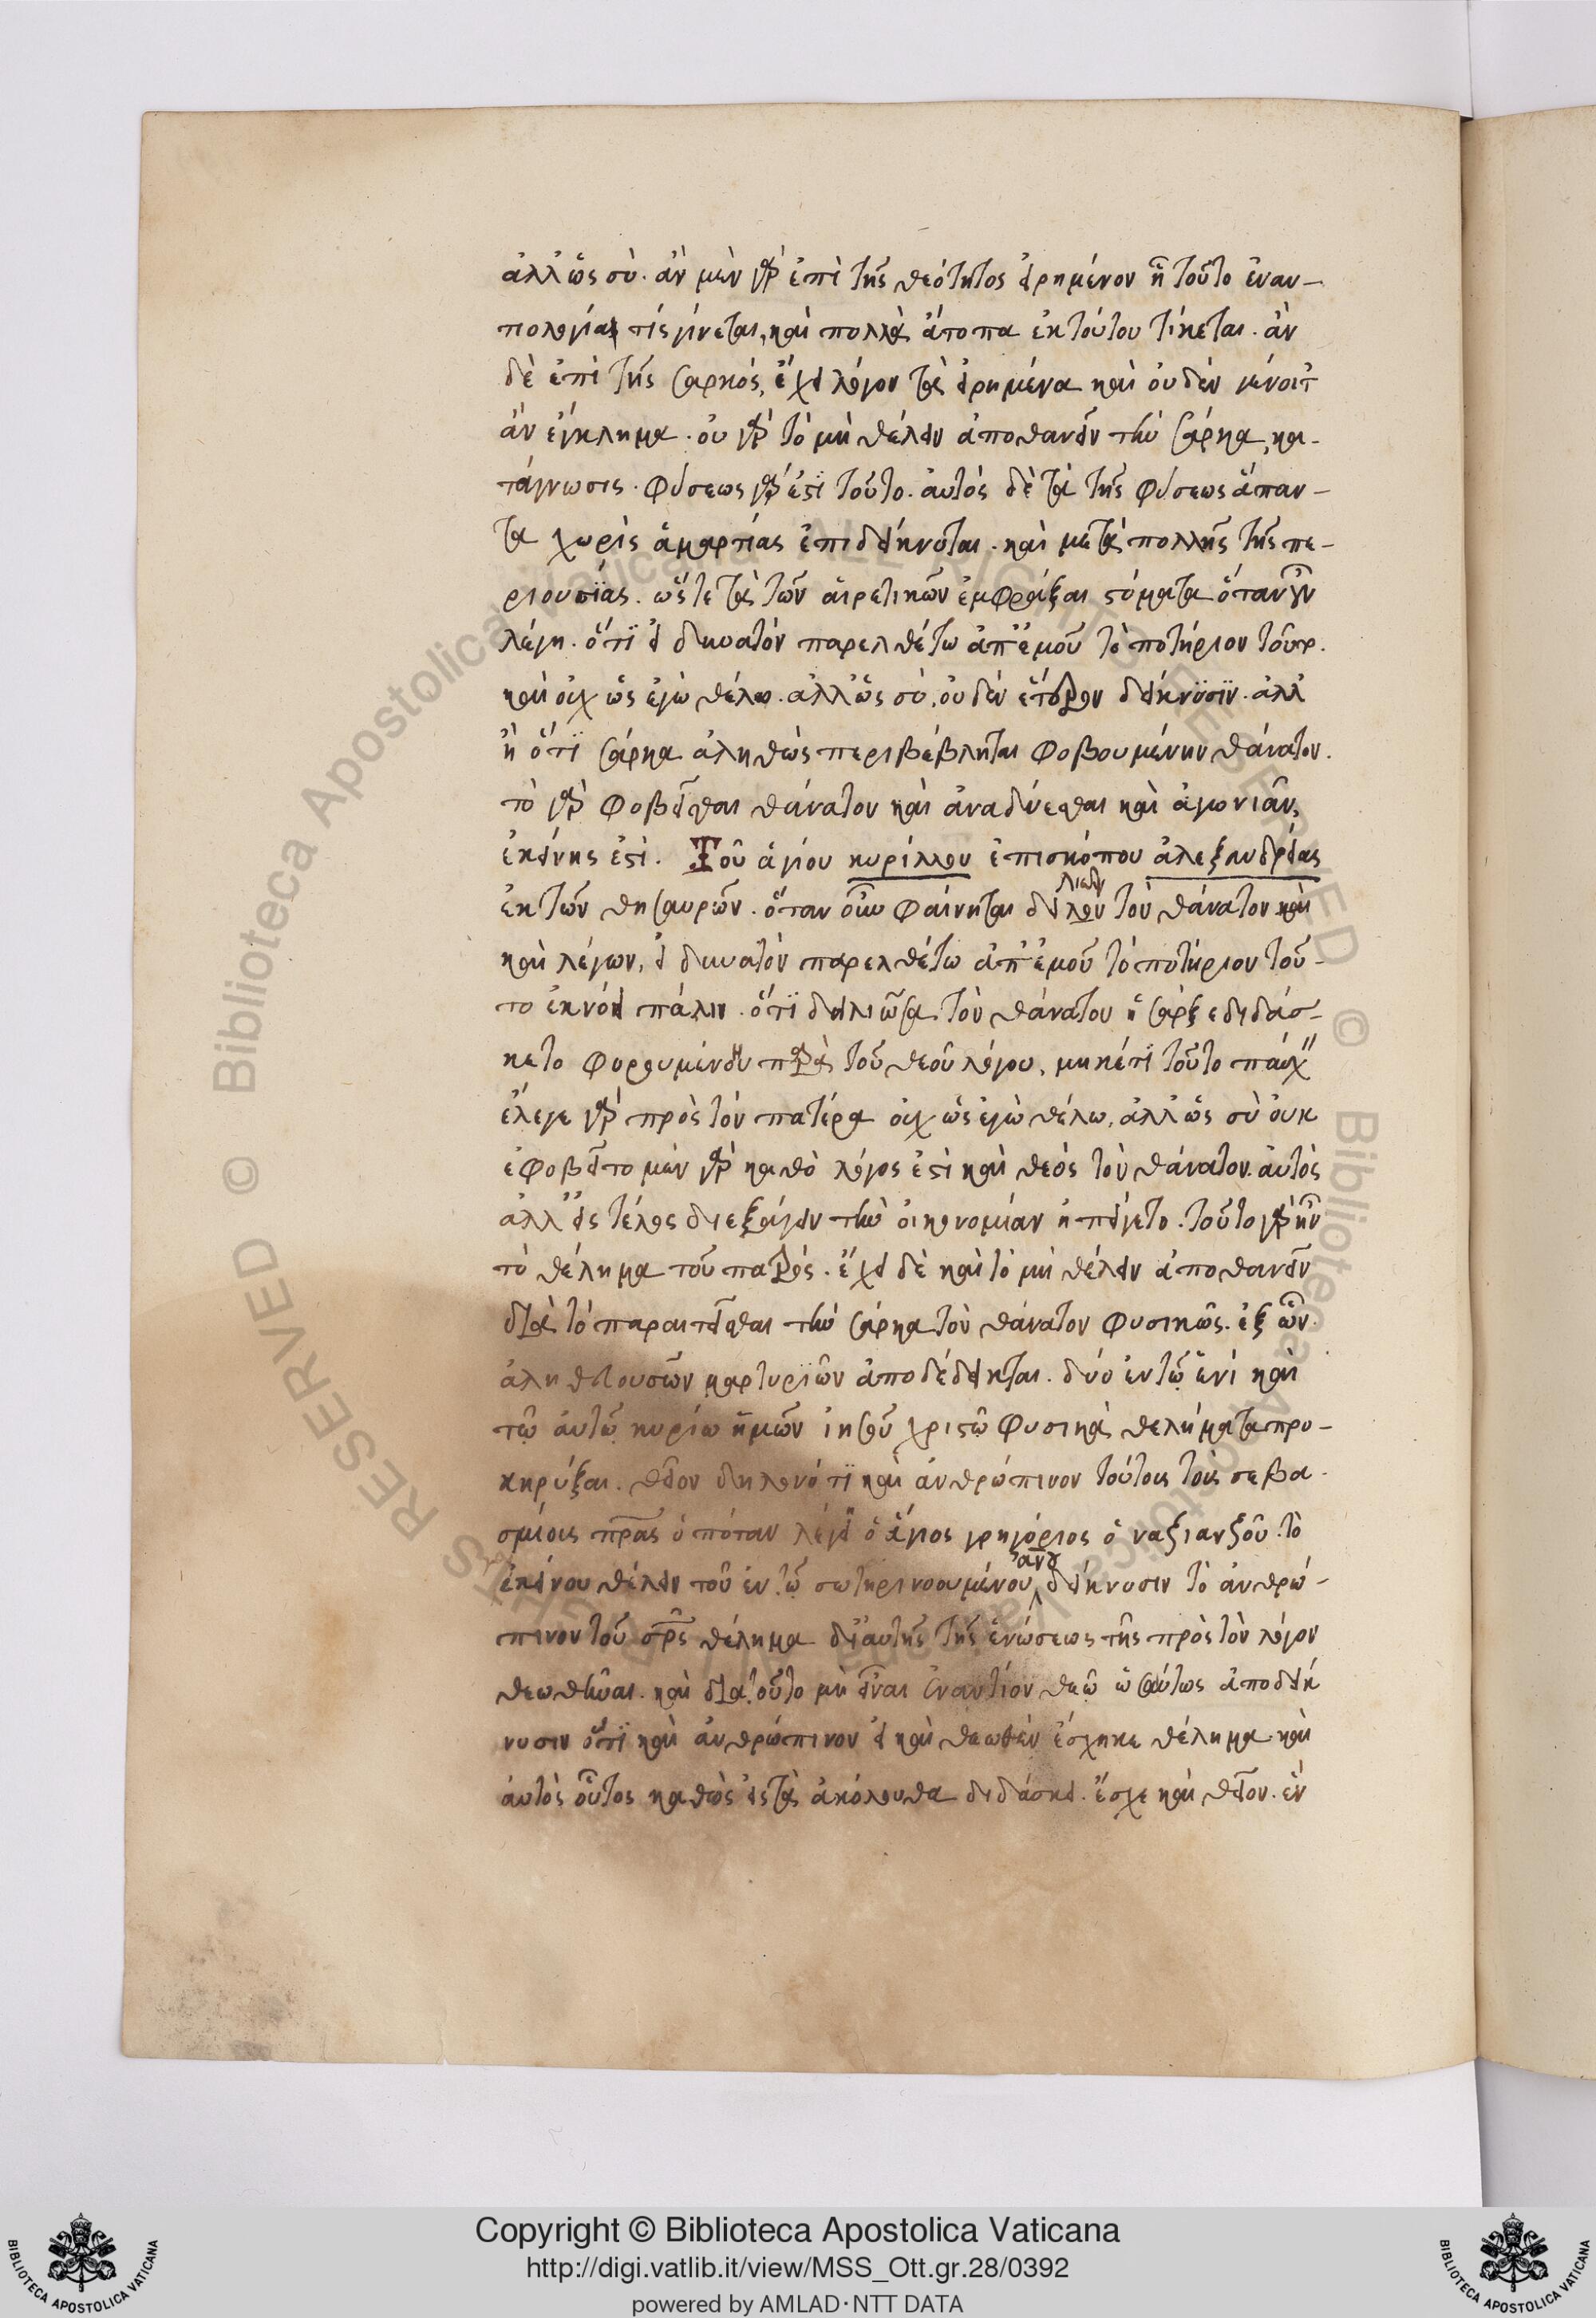 ἀλλ' ὡς σύ. ἂν μὲν γὰρ ἐπὶ τῆς θεότητος εἰρημένον ἦ τοῦτο ἐναν-
τιολογία τίς γίνεται, καὶ πολλὰ ἄτοπα ἐκ τούτου τίκεται. ἂν
δὲ ἐπὶ τῆς σαρκός, ἔχει λόγον τὰ εἰρημένα καὶ οὐδὲν γένοιτ'
ἂν ἔγκλημα. οὐ γὰρ τὸ μὴ θέλειν ἀποθανεῖν τὴν σάρκα, κα-
τάγνωσις. φύσεως γάρ ἐστι τοῦτο. αὐτὸς δὲ τὰ τῆς φύσεως ἅπαν-
τα χωρὶς ἁμαρτίας ἐπιδείκνυται. καὶ μετὰ πολλῆς τῆς πε-
ριουσίας. ὥστε τὰ τῶν αἱρετικῶν ἐμφράξαι στόματα ὅταν οὖν
λέγη. ὅτι εἰ δυνατὸν παρελθέτω ἀπ' ἐμοῦ τὸ ποτήριον τοῦτο.
καὶ οὐχ ὡς ἐγὼ θέλω. ἀλλ' ὡς σύ, οὐδὲν ἕτερον δείκνυσιν. ἀλλ'
ἢ ὅτι σάρκα ἀληθῶς περιβέβληται φοβουμένην θάνατον.
τὸ γὰρ φοβεῖσθαι θάνατον καὶ ἀναδύεσθαι καὶ ἀγωνιᾶν,
ἐκείνης ἐστί. Τοῦ ἁγίου κυρίλλου ἐπισκόπου ἀλεξανδρείας
ἐκ τῶν θησαυρῶν. ὅταν οὖν φαίνηται δειλιῶν τὸν θάνατον καὶ
καὶ λέγων, εἰ δυνατὸν παρελθέτω ἀπ' ἐμοῦ τὸ ποτήριον τοῦ-
το ἐκνόει πάλιν. ὅτι δειλιῶσα τὸν θάνατον ἡ σὰρξ ἐδιδάσ-
κετο φορουμένη παρὰ τοῦ θεοῦ λόγου, μηκέτι τοῦτο πάσχειν
ἔλεγε γὰρ πρὸς τὸν πατέρα οὐχ ὡς ἐγὼ θέλω, ἀλλ' ὡς σὺ οὐκ
ἐφοβεῖτο μὲν γὰρ καθὸ λόγος ἐστὶ καὶ θεὸς τὸν θάνατον. αὐτὸς
ἀλλ' εἰς τέλος διεξάγειν τὴν οἰκονομίαν ἠπείγετο. τοῦτο γὰρ ἦν
τὸ θέλημα τοῦ πατρός. ἔχει δὲ καὶ τὸ μὴ θέλειν ἀποθανεῖν
διὰ τὸ παραιτεῖσθαι τὴν σάρκα τὸν θάνατον φυσικῶς. ἐξ ὧν
ἀληθευουσῶν μαρτυριῶν ἀποδέδεικται. δύο ἐν τῷ ἑνὶ καὶ
τῷ αὐτῷ κυρίῳ ἡμῶν ἰησοῦ χριστῷ φυσικὰ θελήματα προ-
κηρύξαι. θεῖον δηλονότι καὶ ἀνθρώπινον τούτοις τοῖς σεβα-
σμίοις πράσι ὁπόταν λέγη ὁ ἅγιος γρηγόριος ὁ ναζιανζοῦ. τὸ
ἐκείνου θέλειν τοῦ ἐν τῷ σωτῆρι νοουμένου ἀνου δείκνυσιν τὸ ἀνθρώ-
πινον τοῦ σρς θέλημα δι' αὐτῆς τῆς ἑνώσεως τῆς πρὸς τὸν λόγον
θεωθῆναι. καὶ διὰ τοῦτο μὴ εἶναι ἐναντίον θεῷ ὡσαύτως ἀποδείκ
νυσιν ὅτι καὶ ἀνθρώπινον εἰ καὶ θεωθὲν ἔσχηκε θέλημα καὶ
αὐτὸς οὗτος καθὼς εἰς τὰ ἀκόλουθα διδάσκει. ἔσχε καὶ θεῖον. ἐν
Copyright © Biblioteca Apostolica Vaticana
http://digi.vatlib.it/view/MSS_Ott.gr.28/0392
powered by AMLAD·NTT DATA